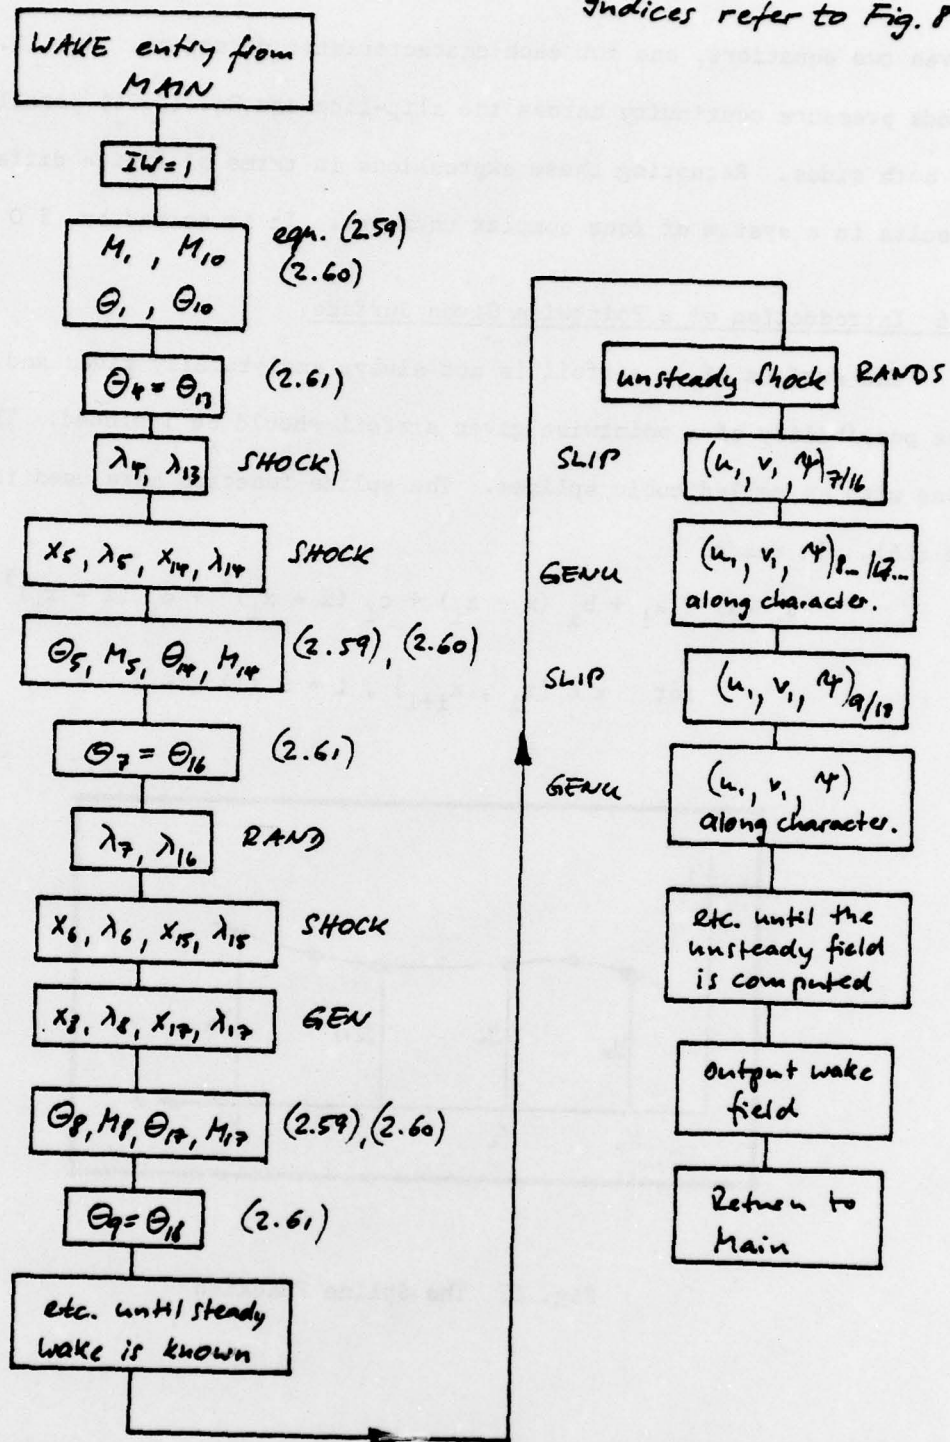 Indices refer to Fig. 8
WAKE entry from
MAIN
IW=1
M₁, M₁₀ eqn. (2.59)
Θ₁, Θ₁₀ (2.60)
Θ₄=Θ₁₃ (2.61)
λ₄, λ₁₃ SHOCK)
x₅, λ₅, x₁₄, λ₁₄ SHOCK
Θ₅, M₅, Θ₁₄, M₁₄ (2.59), (2.60)
Θ₇=Θ₁₆ (2.61)
λ₇, λ₁₆ RAND
x₆, λ₆, x₁₅, λ₁₅ SHOCK
x₈, λ₈, x₁₇, λ₁₇ GEN
Θ₈, M₈, Θ₁₇, M₁₇ (2.59), (2.60)
Θ₉=Θ₁₈ (2.61)
etc. until steady
wake is known
unsteady Shock RANDS
SLIP (u₁, v₁, Ψ)₇/₁₆
GENU (u₁, v₁, Ψ)₈…/₁₇…
along character.
SLIP (u₁, v₁, Ψ)₉/₁₈
GENU (u₁, v₁, Ψ)
along character.
etc. until the
unsteady field
is computed
Output wake
field
Return to
Main